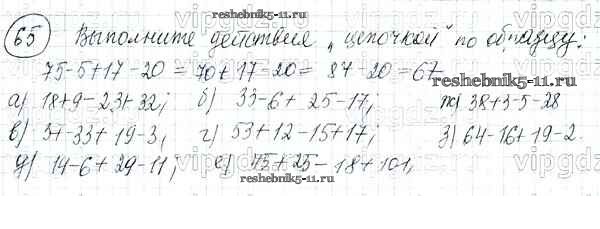 reshebnik5-11.ru
65 Выполните действие „цепочкой" по образцу:
75-5+17-20 = 70+17-20 = 87-20=67
reshebnik5-11.ru
а) 18+9-23+32; б) 33-6+25-17; ж) 38+3-5-28
в) 3+33+19-3, г) 53+12-15+17; з) 64-16+19-2
д) 14-6+29-11; е) 75+25-18+101,
reshebnik5-11.ru